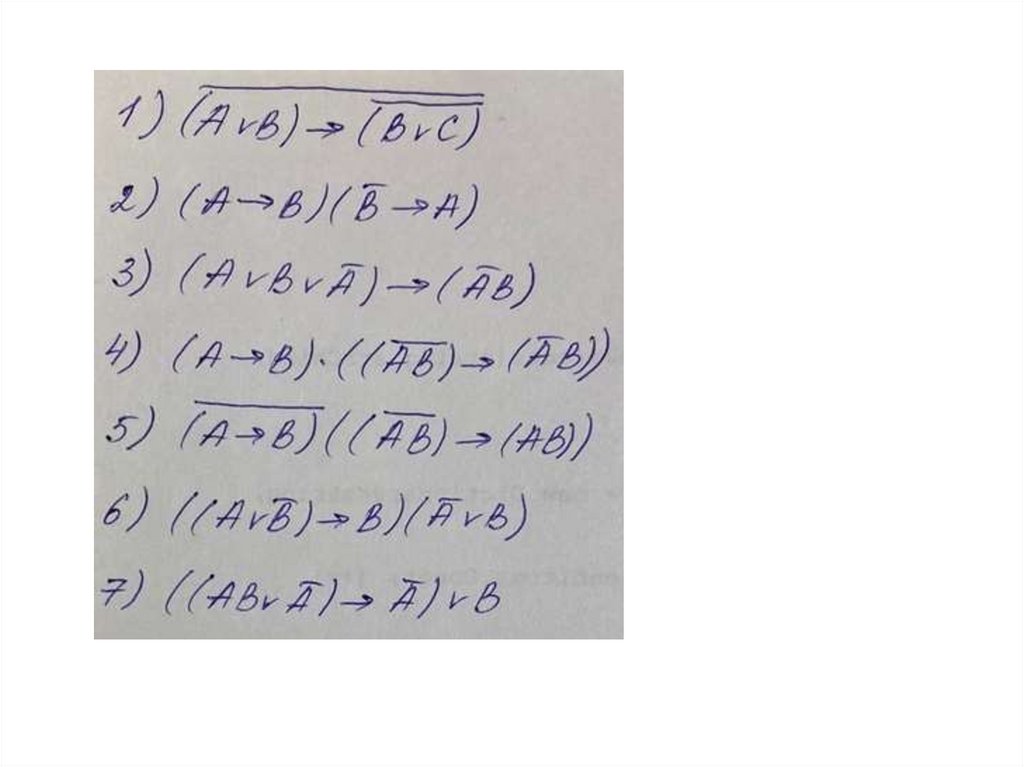 1) \overline{(A ∨ B) → \overline{(B ∨ C)}}
2) (A → B)(B̅ → A)
3) (A ∨ B ∨ A̅) → (A̅B)
4) (A → B)·((\overline{AB}) → (A̅B))
5) \overline{(A → B)}((\overline{AB}) → (AB))
6) ((A ∨ B̅) → B)(A̅ ∨ B)
7) ((AB ∨ A̅) → A̅) ∨ B